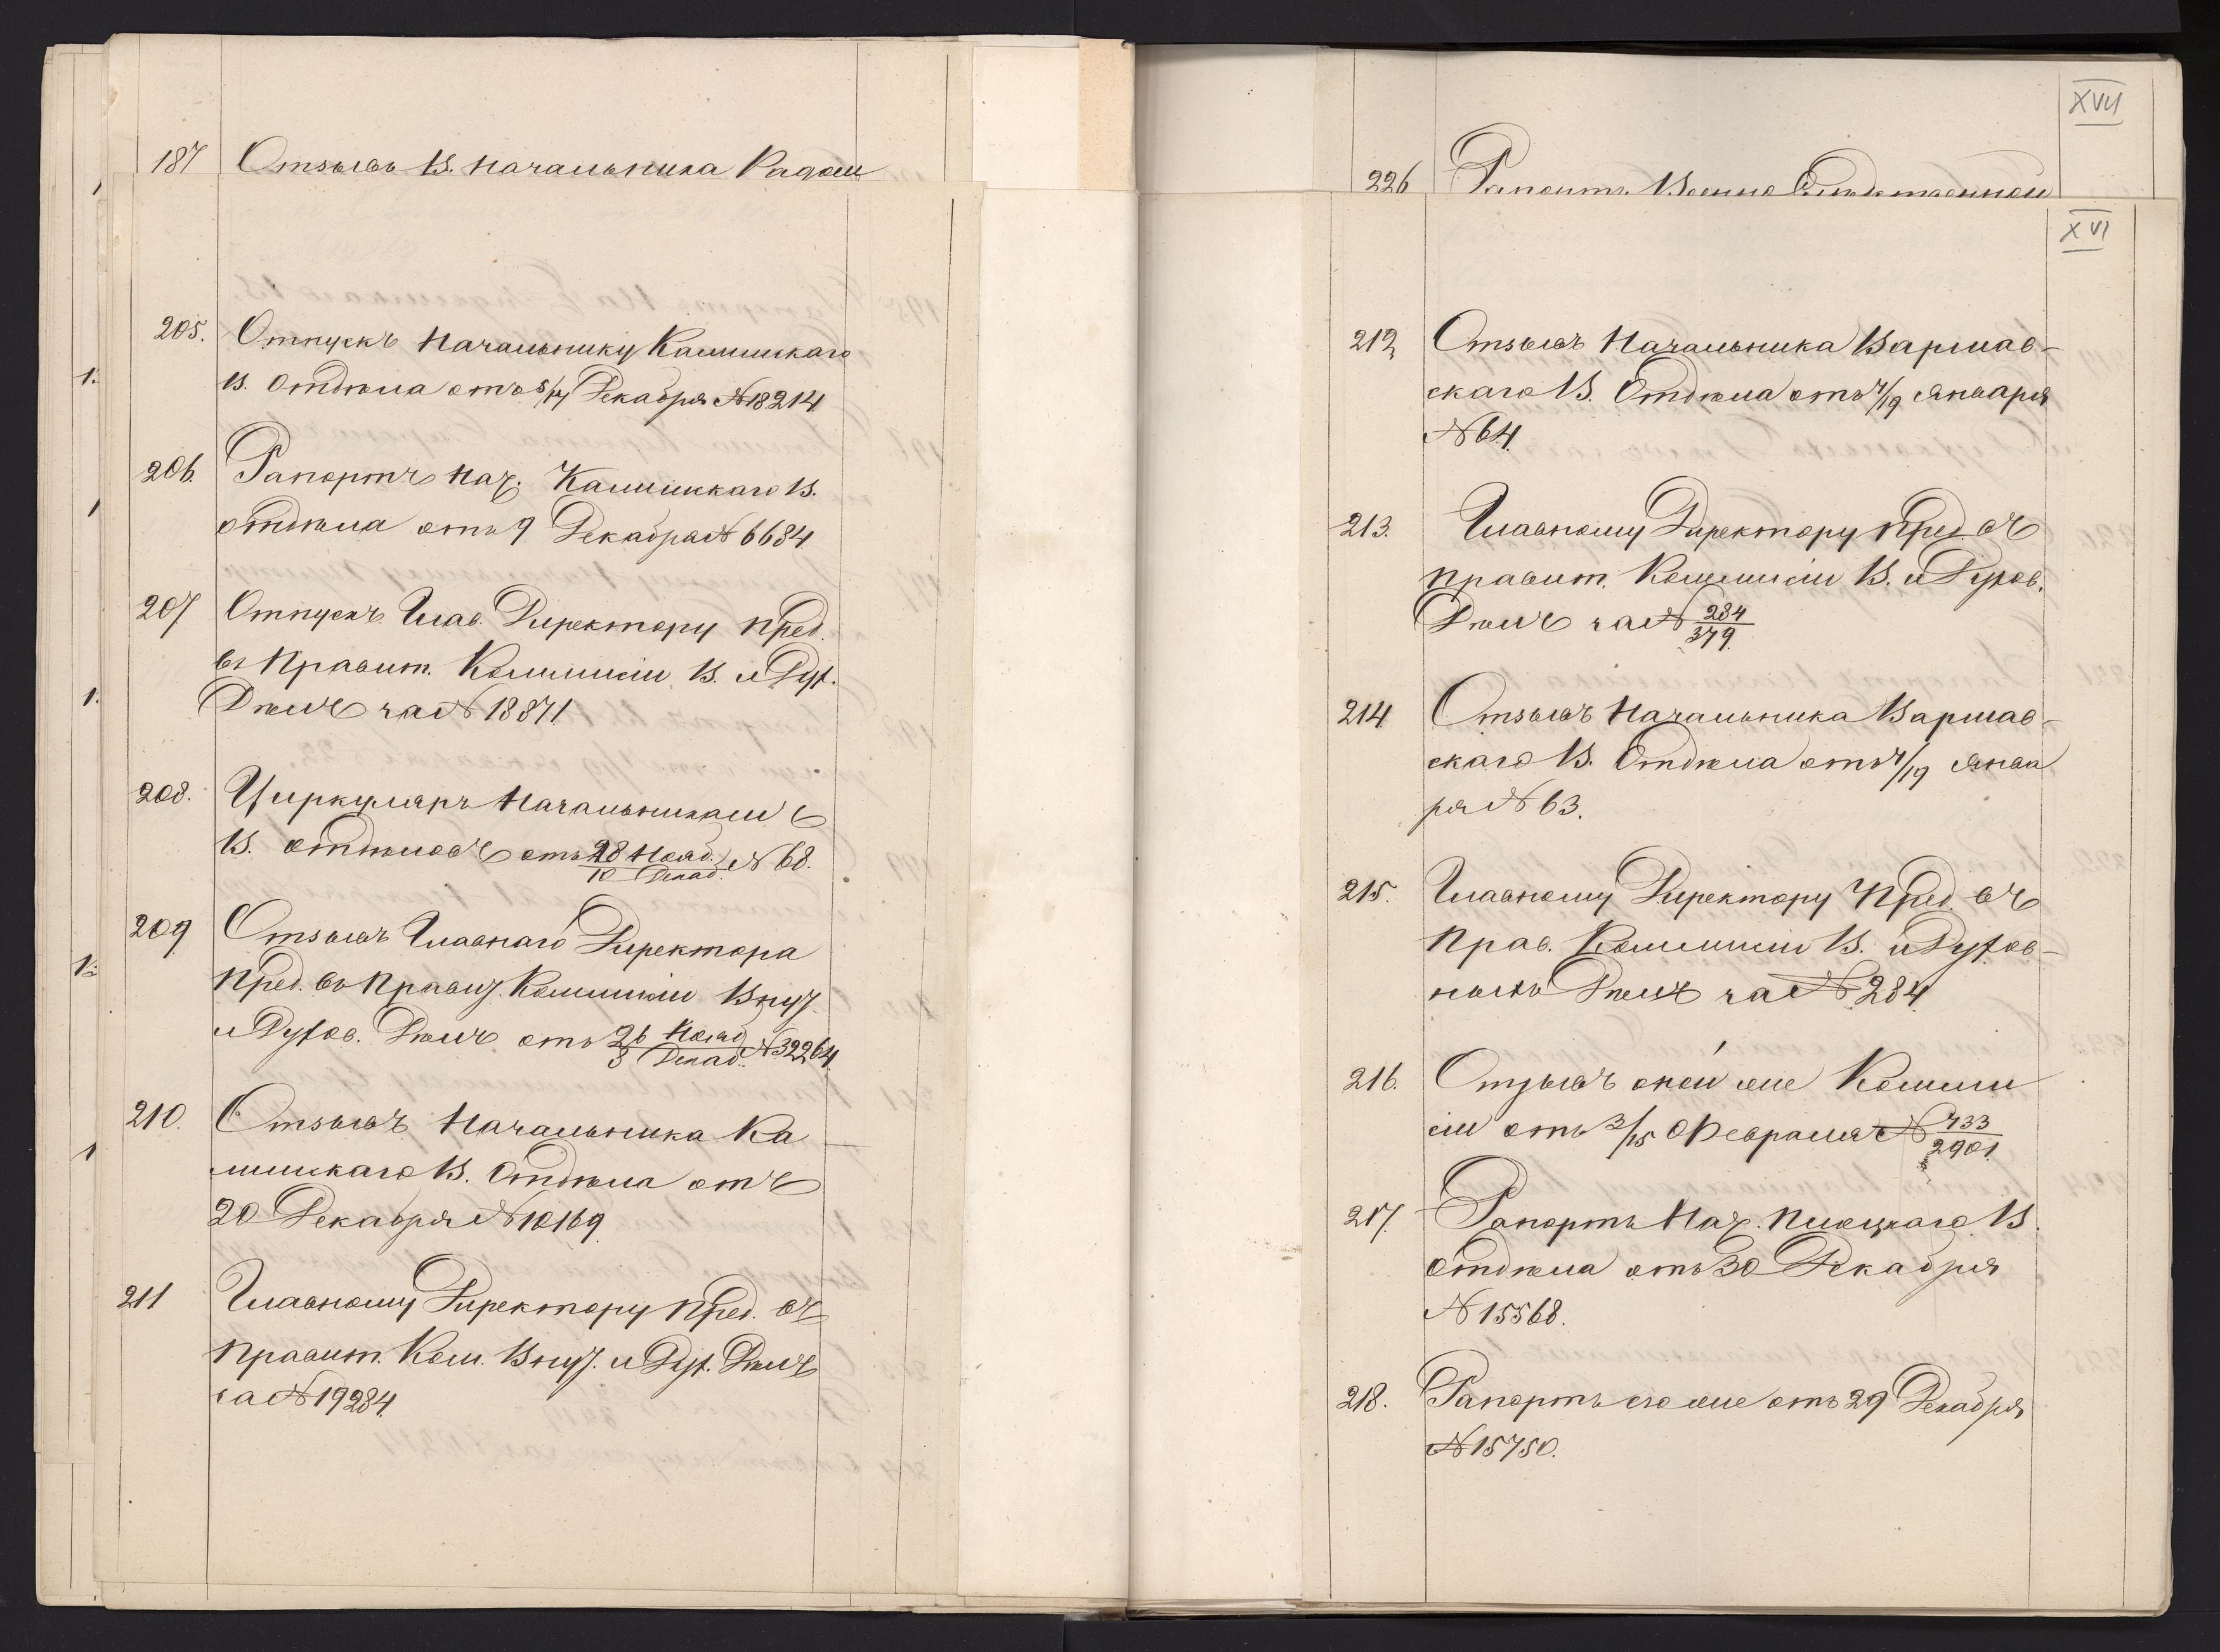 187 Отзывъ В. Начальника Радом
205. Отпускъ Начальнику Калишскаго
В. Отдѣла отъ 5/17 Декабря № 18214
206. Рапортъ Нач. Калишскаго В.
отдѣла отъ 9 Декабря № 6684
207 Отпускъ Глав. Директору Пред.
въ Правит. Коммисіи В. и Дух.
Дѣлъ за № 18871
208. Циркуляръ Начальникамъ
В. отдѣловъ отъ 28 Нояб./10 Декаб. № 68.
209 Отзывъ Главнаго Директора
Пред. въ Правит. Коммисіи Внут.
и Духов. Дѣлъ отъ 26 Нояб/8 Декаб. № 32264.
210. Отзывъ Начальника Ка
лишскаго В. Отдѣла отъ
20 Декабря № 10169
211 Главному Директору Пред. въ
Правит. Ком. Внут. и Дух. Дѣлъ
за № 19284.
XVII
226 Рапортъ Военно Слѣдственной
XVI
212 Отзывъ Начальника Варшав-
скаго В. Отдѣла отъ 7/19 Января
№ 64.
213. Главному Директору Пред. въ
Правит. Коммисіи В. и Духов.
Дѣлъ за № 284/379.
214 Отзывъ Начальника Варшав-
скаго В. Отдѣла отъ 7/19 Янва
ря № 63.
215. Главному Директору Пред. въ
Прав. Коммисіи В. и Духов-
ныхъ Дѣлъ за № 284
216. Отзывъ оной же Комми
сіи отъ 3/15 Февраля № 733/2901.
217. Рапортъ Нач. Плоцкаго В.
отдѣла отъ 30 Декабря
№ 15568.
218. Рапортъ его же отъ 29 Декабря
№ 15750.